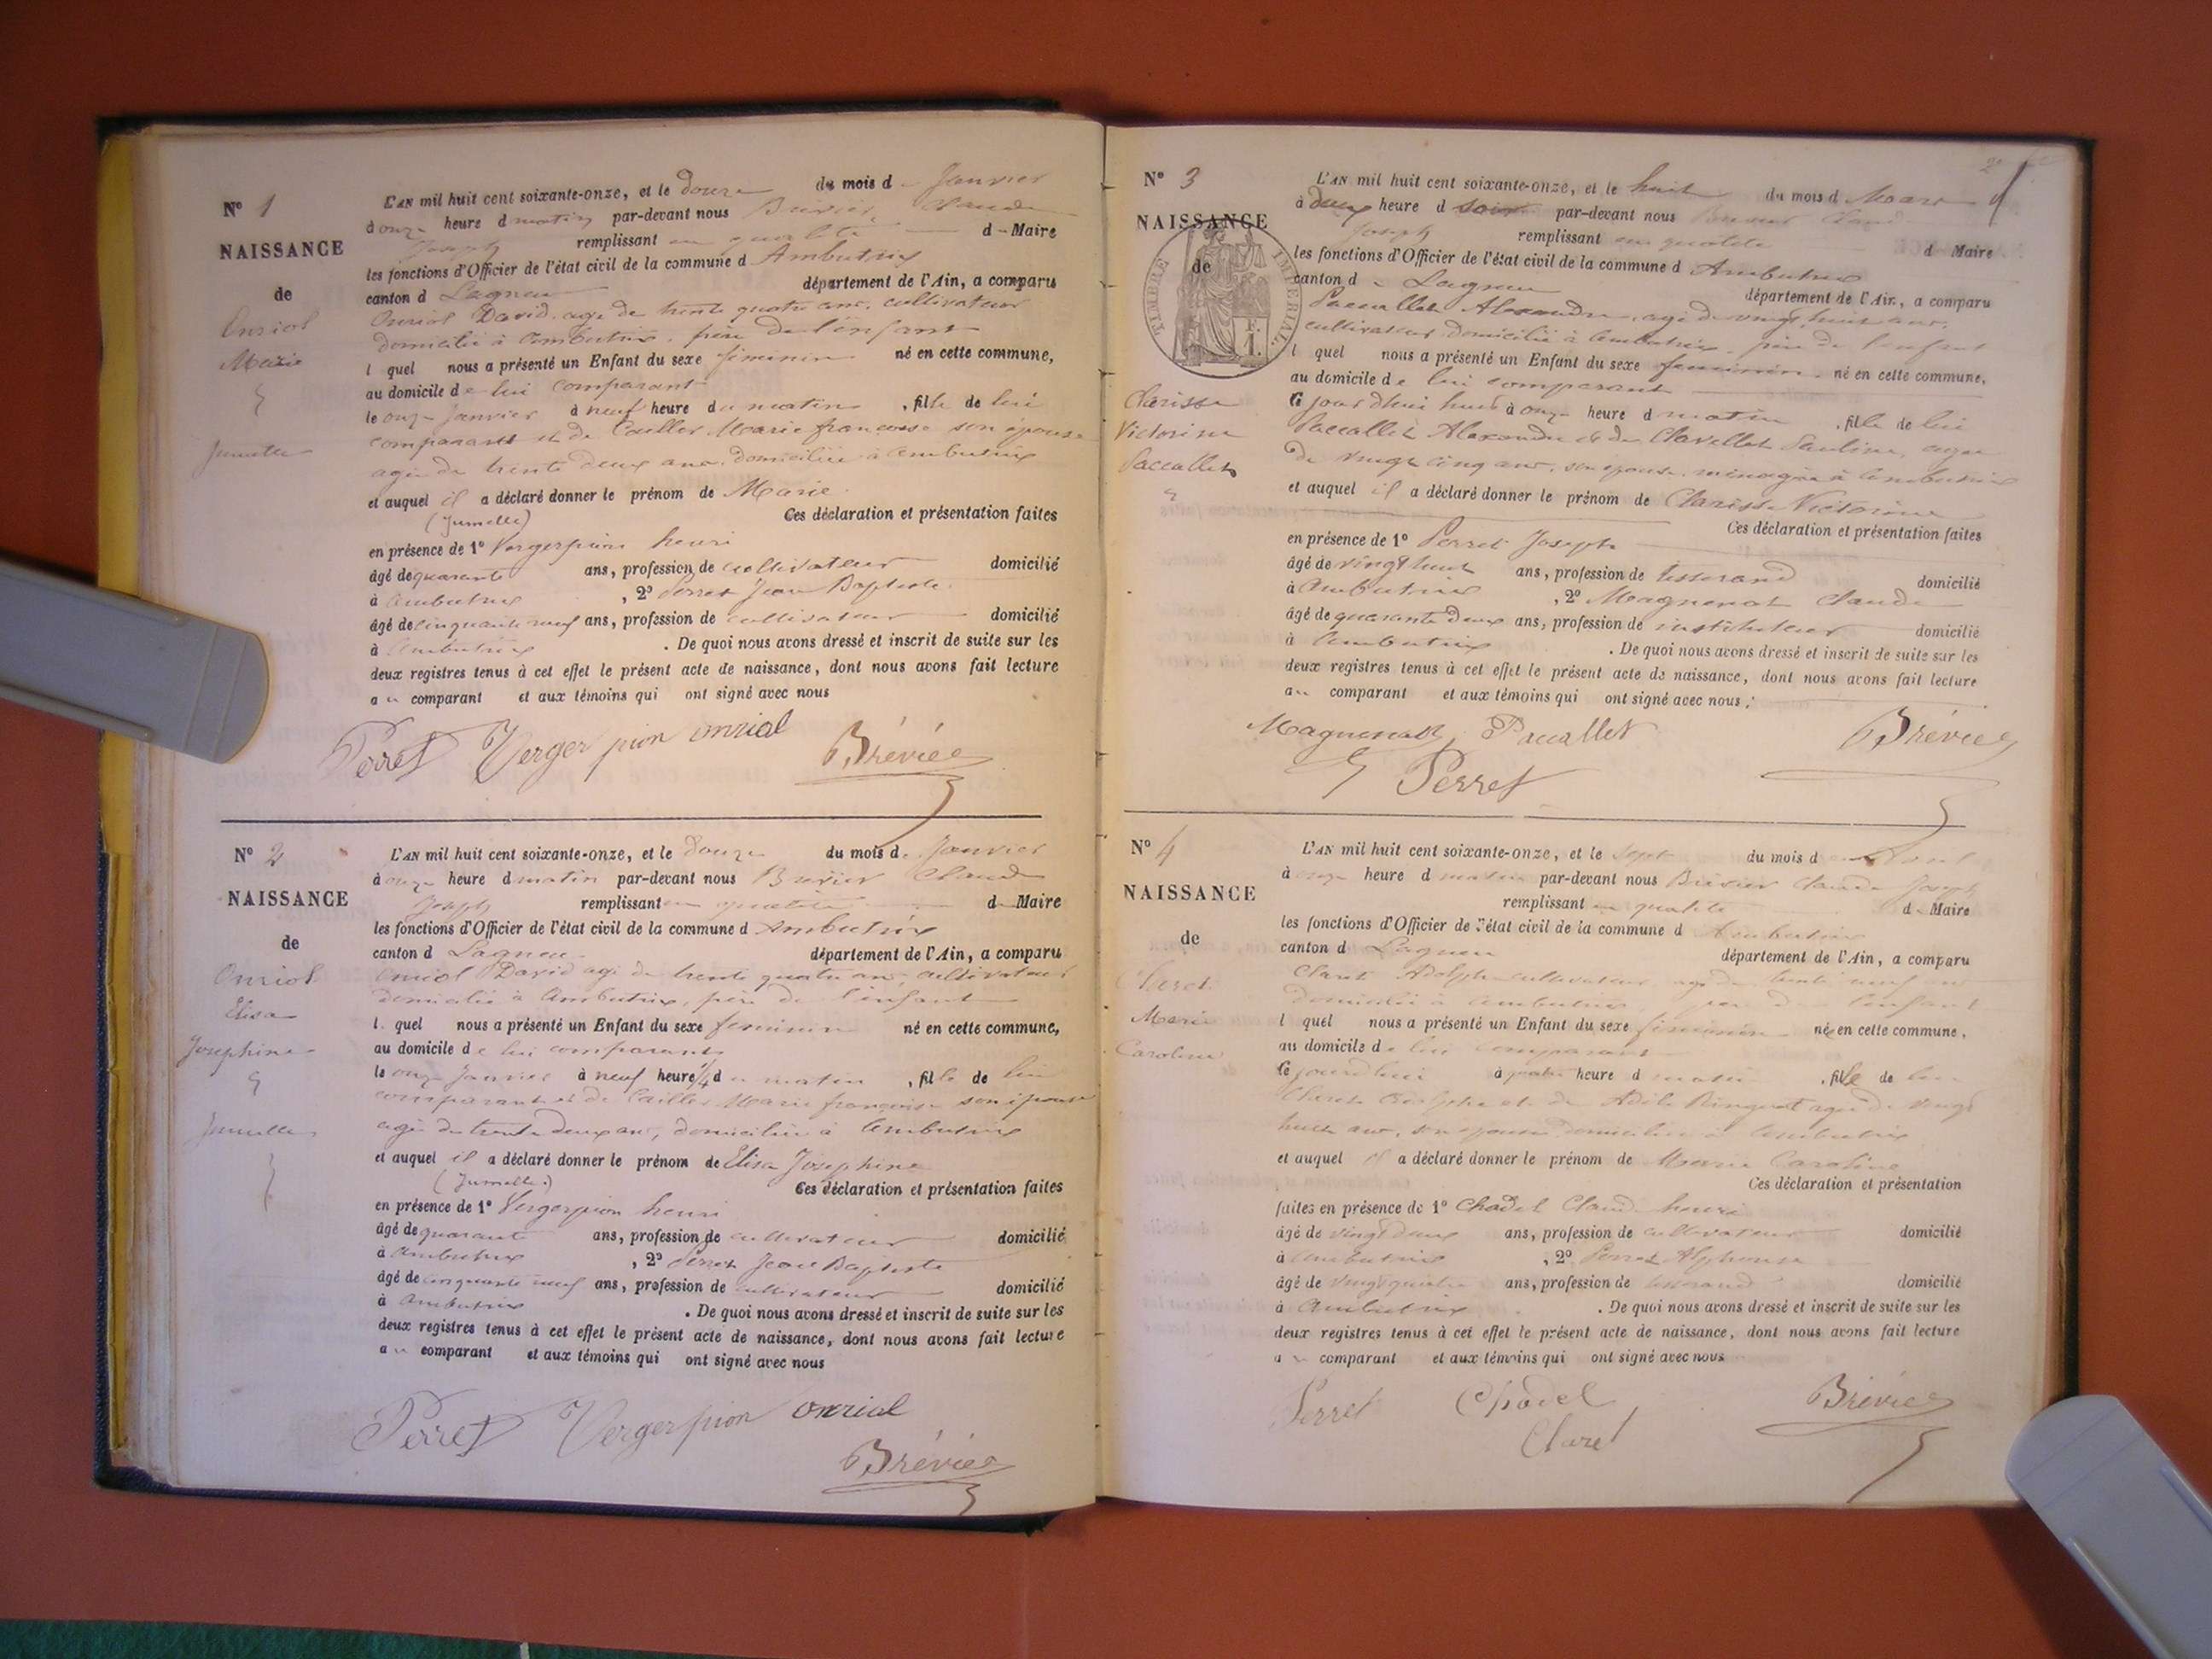 N° 1
NAISSANCE
de
Onriol
Marie
Jumelle
L'AN mil huit cent soixante-onze, et le douze du mois d Janvier
à onze heure d matin par-devant nous Brévier Claude
Joseph remplissant en qualité d Maire
les fonctions d'Officier de l'état civil de la commune d Ambutrix
canton d Lagneu département de l'Ain, a comparu
Onriol David, agé de trente quatre ans, cultivateur
domicilié à Ambutrix, père de l'enfant
l quel nous a présenté un Enfant du sexe féminin né en cette commune,
au domicile de lui comparant
le onze Janvier à neuf heure du matin , fille de lui
comparant et de Marie françoise son épouse
agée de trente deux ans, domiciliée à Ambutrix
et auquel il a déclaré donner le prénom de Marie
(Jumelle) Ces déclaration et présentation faites
en présence de 1° Vergerpion henri
âgé de quarante ans, profession de cultivateur domicilié
à Ambutrix , 2° Perret Jean Baptiste
âgé de cinquante neuf ans, profession de cultivateur domicilié
à Ambutrix . De quoi nous avons dressé et inscrit de suite sur les
deux registres tenus à cet effet le présent acte de naissance, dont nous avons fait lecture
au comparant et aux témoins qui ont signé avec nous
Perret Vergerpion onriol Brévier
N° 2
NAISSANCE
de
Onriol
Elisa
Josephine
Jumelle
L'AN mil huit cent soixante-onze, et le douze du mois de Janvier
à onze heure d matin par-devant nous Brévier Claude
Joseph remplissant en qualité d Maire
les fonctions d'Officier de l'état civil de la commune d Ambutrix
canton d Lagneu département de l'Ain, a comparu
Onriol David agé de trente quatre ans, cultivateur
domicilié à Ambutrix, père de l'enfant
l quel nous a présenté un Enfant du sexe féminin né en cette commune,
au domicile de lui comparant
le onze Janvier à neuf heure 1/4 du matin , fille de lui
comparant et de Marie françoise son épouse
agée de trente deux ans, domiciliée à Ambutrix
et auquel il a déclaré donner le prénom de Elisa Josephine
(Jumelle) Ces déclaration et présentation faites
en présence de 1° Vergerpion henri
âgé de quarante ans, profession de cultivateur domicilié
à Ambutrix , 2° Perret Jean Baptiste
âgé de cinquante neuf ans, profession de cultivateur domicilié
à Ambutrix . De quoi nous avons dressé et inscrit de suite sur les
deux registres tenus à cet effet le présent acte de naissance, dont nous avons fait lecture
au comparant et aux témoins qui ont signé avec nous
Perret Vergerpion onriol
Brévier
N° 3
NAISSANCE
de
TIMBRE IMPERIAL
Clarisse
Victorine
Paccallet
L'AN mil huit cent soixante-onze, et le huit du mois d Mars
à deux heure d soir par-devant nous Brévier Claude
Joseph remplissant en qualité d Maire
les fonctions d'Officier de l'état civil de la commune d Ambutrix
canton d Lagneu département de l'Ain, a comparu
Paccallet Alexandre, agé de vingt huit ans,
cultivateur domicilié à Ambutrix, père de l'enfant
l quel nous a présenté un Enfant du sexe féminin né en cette commune,
au domicile de lui comparant
Cejourd'hui huit à onze heure d matin , fille de lui
Paccallet Alexandre et de Clavellet Pauline, agée
de vingt cinq ans, son épouse, ménagère à Ambutrix
et auquel il a déclaré donner le prénom de Clarisse Victorine
Ces déclaration et présentation faites
en présence de 1° Perret Joseph
âgé de vingt huit ans, profession de tisserand domicilié
à Ambutrix , 2° Magnenat Claude
âgé de quarante deux ans, profession de instituteur domicilié
à Ambutrix . De quoi nous avons dressé et inscrit de suite sur les
deux registres tenus à cet effet le présent acte de naissance, dont nous avons fait lecture
au comparant et aux témoins qui ont signé avec nous.
Magnenat Paccallet Brévier
Perret
N° 4
NAISSANCE
de
Claret
Marie
Caroline
L'AN mil huit cent soixante-onze, et le sept du mois d
à onze heure d matin par-devant nous Brévier Claude Joseph
remplissant en qualité d Maire
les fonctions d'Officier de l'état civil de la commune d Ambutrix
canton d Lagneu département de l'Ain, a comparu
Claret Adolphe cultivateur, agé de trente neuf ans
domicilié à Ambutrix, père de l'enfant
l quel nous a présenté un Enfant du sexe féminin née en cette commune,
au domicile de lui comparant
Cejourd'hui à quatre heure d matin , fille de lui
Claret Adolphe et de Adèle agée de vingt
huit ans, son épouse, domiciliée à Ambutrix
et auquel il a déclaré donner le prénom de Marie Caroline
Ces déclaration et présentation
faites en présence de 1° Chadel Claude henri
âgé de vingt deux ans, profession de cultivateur domicilié
à Ambutrix , 2° Perret Alphonse
âgé de vingt quatre ans, profession de tisserand domicilié
à Ambutrix . De quoi nous avons dressé et inscrit de suite sur les
deux registres tenus à cet effet le présent acte de naissance, dont nous avons fait lecture
au comparant et aux témoins qui ont signé avec nous
Perret Chadel Brévier
Claret